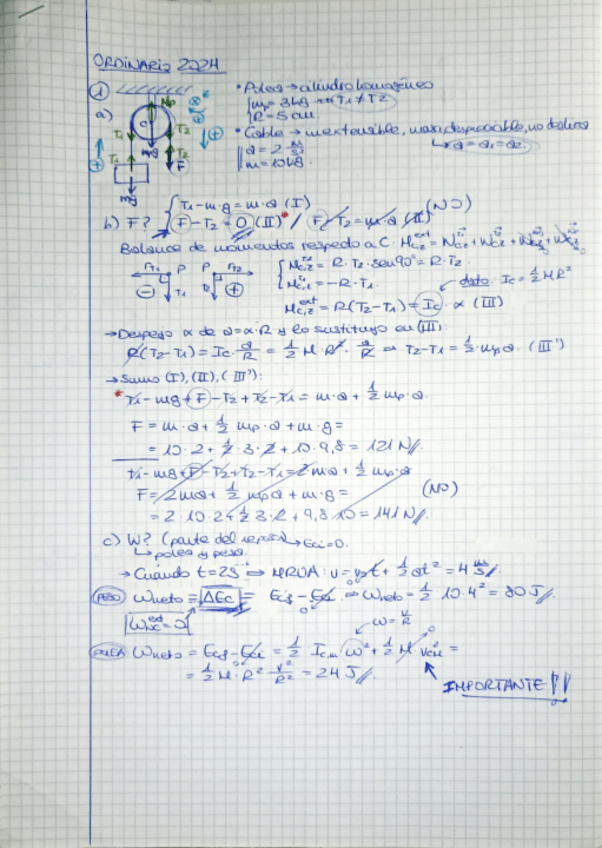 ORDINARIA 2024
① • Polea → cilindro homogéneo
a) mp = 3 kg ⇒ T₁ ≠ T₂
R = 5 cm.
• Cable → inextensible, masa despreciable, no desliza
a = 2 m/s² ↳ a = a₁ = a₂
m = 10 kg.
Np
C
T₁ T₂
T₁ T₂
mg F
mg
T₁ - m·g = m·a (I)
b) F? F - T₂ = 0 (II)* / F - T₂ = m·a (II) (NO)
Balance de momentos respecto a C.
P P
T₁ T₂
M = R·T₂·sen90° = R·T₂
M = -R·T₁
dato. Ic = 1/2 MR²
M = R(T₂-T₁) = Ic·α (III)
→ Despejo α de a = α·R y lo sustituyo en (III):
R(T₂-T₁) = Ic·a/R = 1/2 M·R²·a/R ⇒ T₂-T₁ = 1/2·mp·a. (III')
→ Sumo (I), (II), (III'):
* T₁ - mg + F - T₂ + T₂ - T₁ = m·a + 1/2 mp·a.
F = m·a + 1/2 mp·a + m·g =
= 10·2 + 1/2·3·2 + 10·9,8 = 121 N//.
T₁ - mg + F - T₂ + T₂ - T₁ = 2m·a + 1/2 mp·a
F = 2ma + 1/2 mp a + m·g = (NO)
= 2·10·2 + 1/2 3·2 + 9,8·10 = 141 N//.
c) W? (parte del reposo) → Eci = 0.
↳ polea y pesa.
→ Cuando t = 2s ⇒ MRUA: v = v₀t + 1/2 at² = 4 m/s//.
PESO Wneto = ΔEc = Ecf - Eci ⇒ Wneto = 1/2 10·4² = 80 J//.
= 0
ω = v/R
POLEA Wneto = Ecf - Eci = 1/2 Icm ω² + 1/2 M vcm² =
= 1/2 M·R² v²/R² = 24 J//.
IMPORTANTE!!